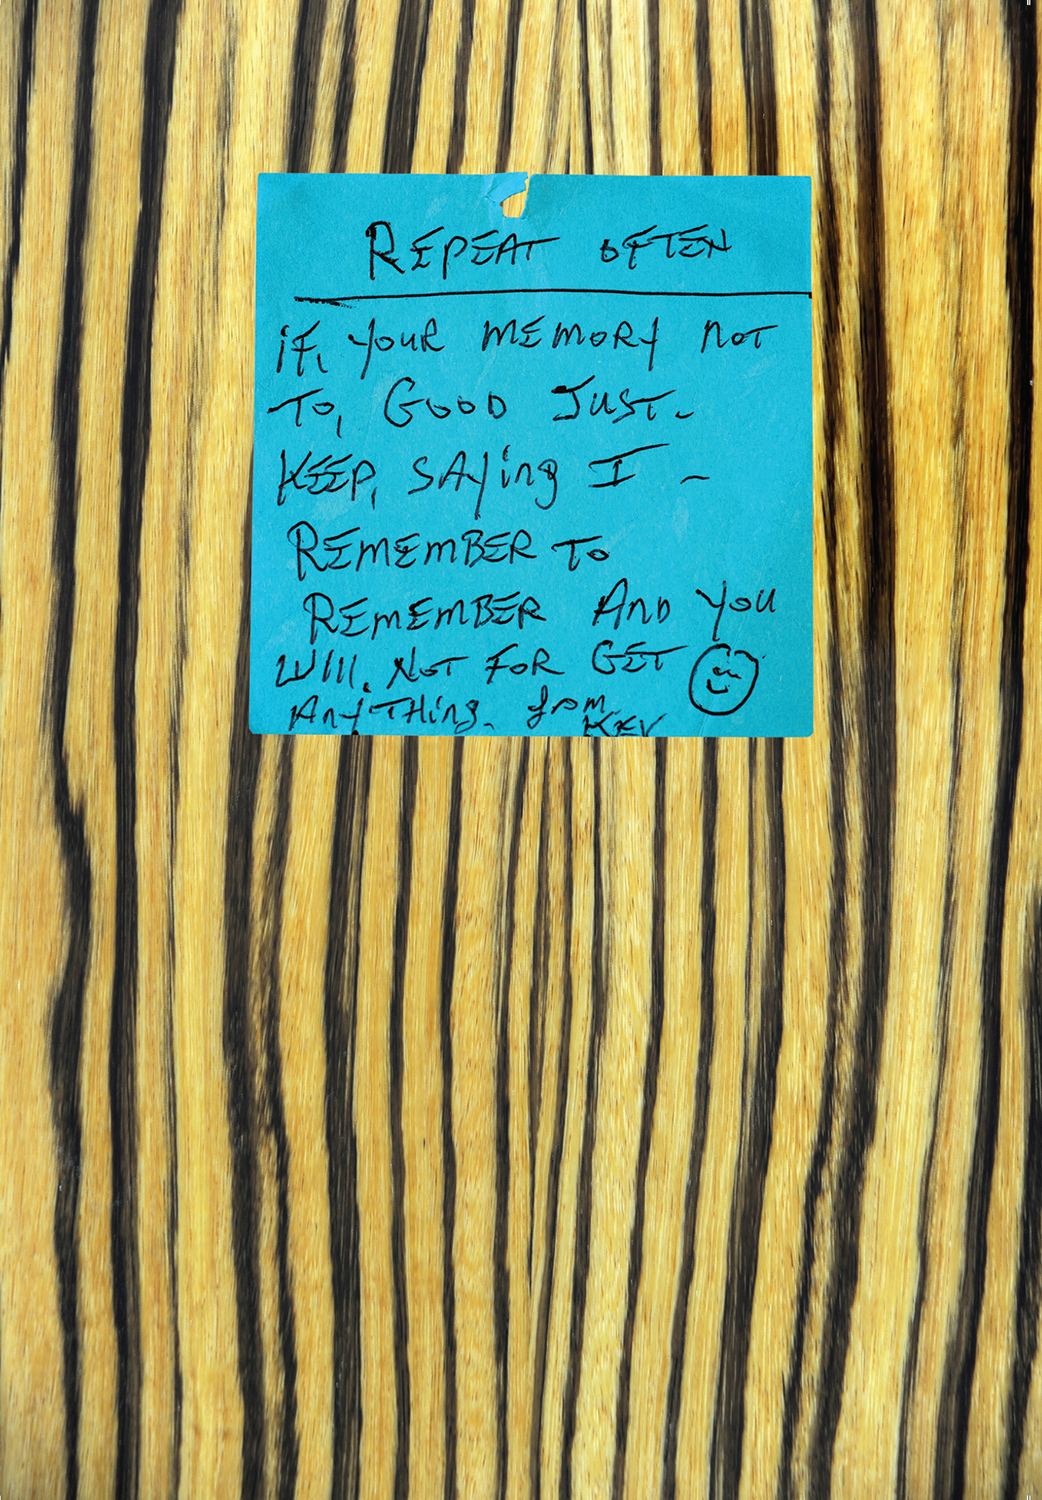 REPEAT OFTEN
iF, YOUR MEMORY NOT
TO, GOOD JUST-
KEEP, SAYing I -
REMEMBER TO
REMEMBER AND YOU
WIll. NOT FOR GET
AnYTHing. from
KEV